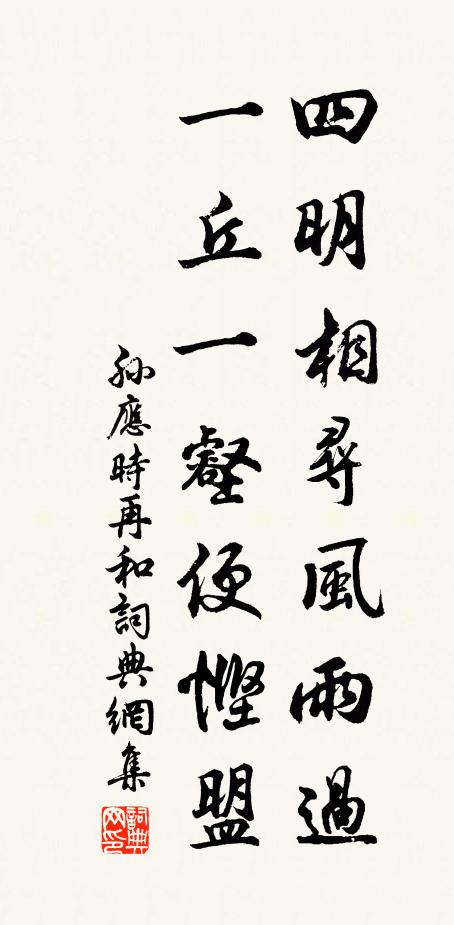 四明相尋風雨過
一丘一壑便慳盟
孫應時再和詞典網集
詞典网印